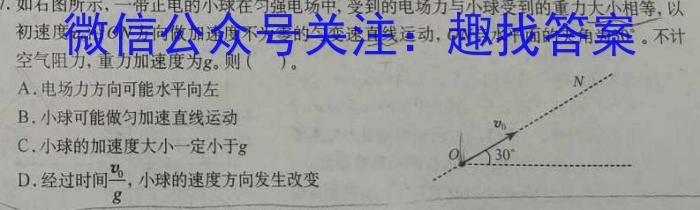 7. 如右图所示，一带正电的小球在匀强电场中，受到的电场力与小球受到的重力大小相等，以
初速度 方向做加速度不为零的匀变速直线运动， 。不计
微信公众号关注：趣找答案
空气阻力，重力加速度为g。则（　　）。
A.电场力方向可能水平向左
B.小球可能做匀加速直线运动
C.小球的加速度大小一定小于g
D.经过时间v₀/g，小球的速度方向发生改变
N
v₀
O
30°